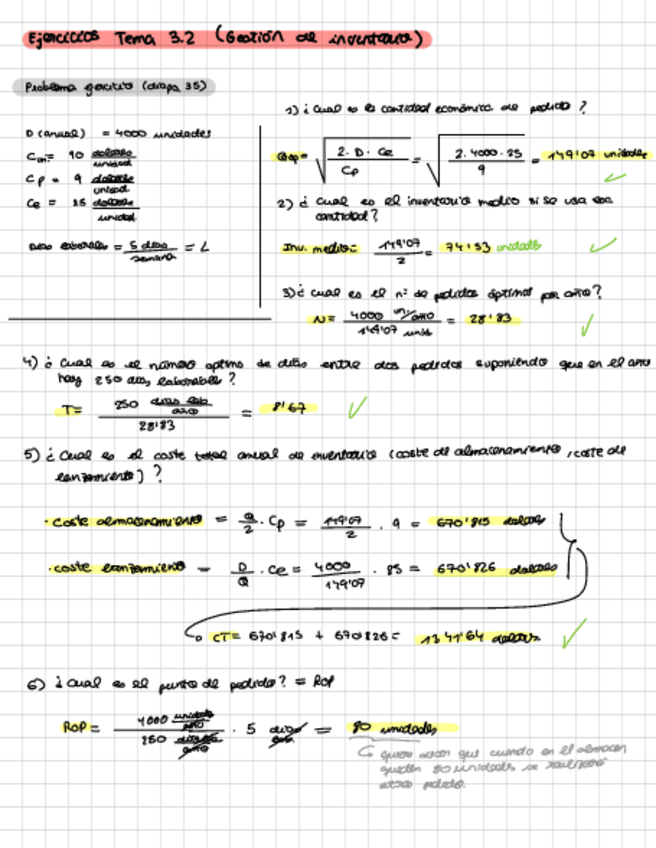 Ejercicios Tema 3.2 (Gestión de inventario)
Problema (diapo 35)
D (anual) = 4000 unidades
Cun = 90 dolares / unidad
Cp = 9 dolares / unidad
Ce = 25 dolares / unidad
Dias laborales = 5 dias / semana = L
1) ¿Cual es la cantidad económica de pedido?
Qop = √(2·D·Ce / Cp) = √(2·4000·25 / 9) = 149'07 unidades
2) ¿Cual es el inventario medio si se usa esa
cantidad?
Inv. medio = 149'07 / 2 = 74'53 unidades
3) ¿Cual es el nº de pedidos óptimos por año?
N = 4000 un/año / 149'07 unids = 26'83
4) ¿Cual es el número optimo de dias entre dos pedidos suponiendo que en el año
hay 250 dias laborables?
T = 250 dias lab / año / 26'83 = 8'67
5) ¿Cual es el coste total anual de inventario (coste de almacenamiento, coste de
lanzamiento)?
· Coste almacenamiento = Q/2 · Cp = 149'07 / 2 · 9 = 670'815 dolares
· coste lanzamiento = D/Q · Ce = 4000 / 149'07 · 25 = 670'826 dolares
CT = 670'815 + 670'826 = 1341'64 dolares
6) ¿Cual es el punto de pedido? = ROP
ROP = 4000 unidades / año / 250 dias / año · 5 dias = 80 unidades
quiere decir que cuando en el almacen
queden 80 unidades se realizará
otro pedido.